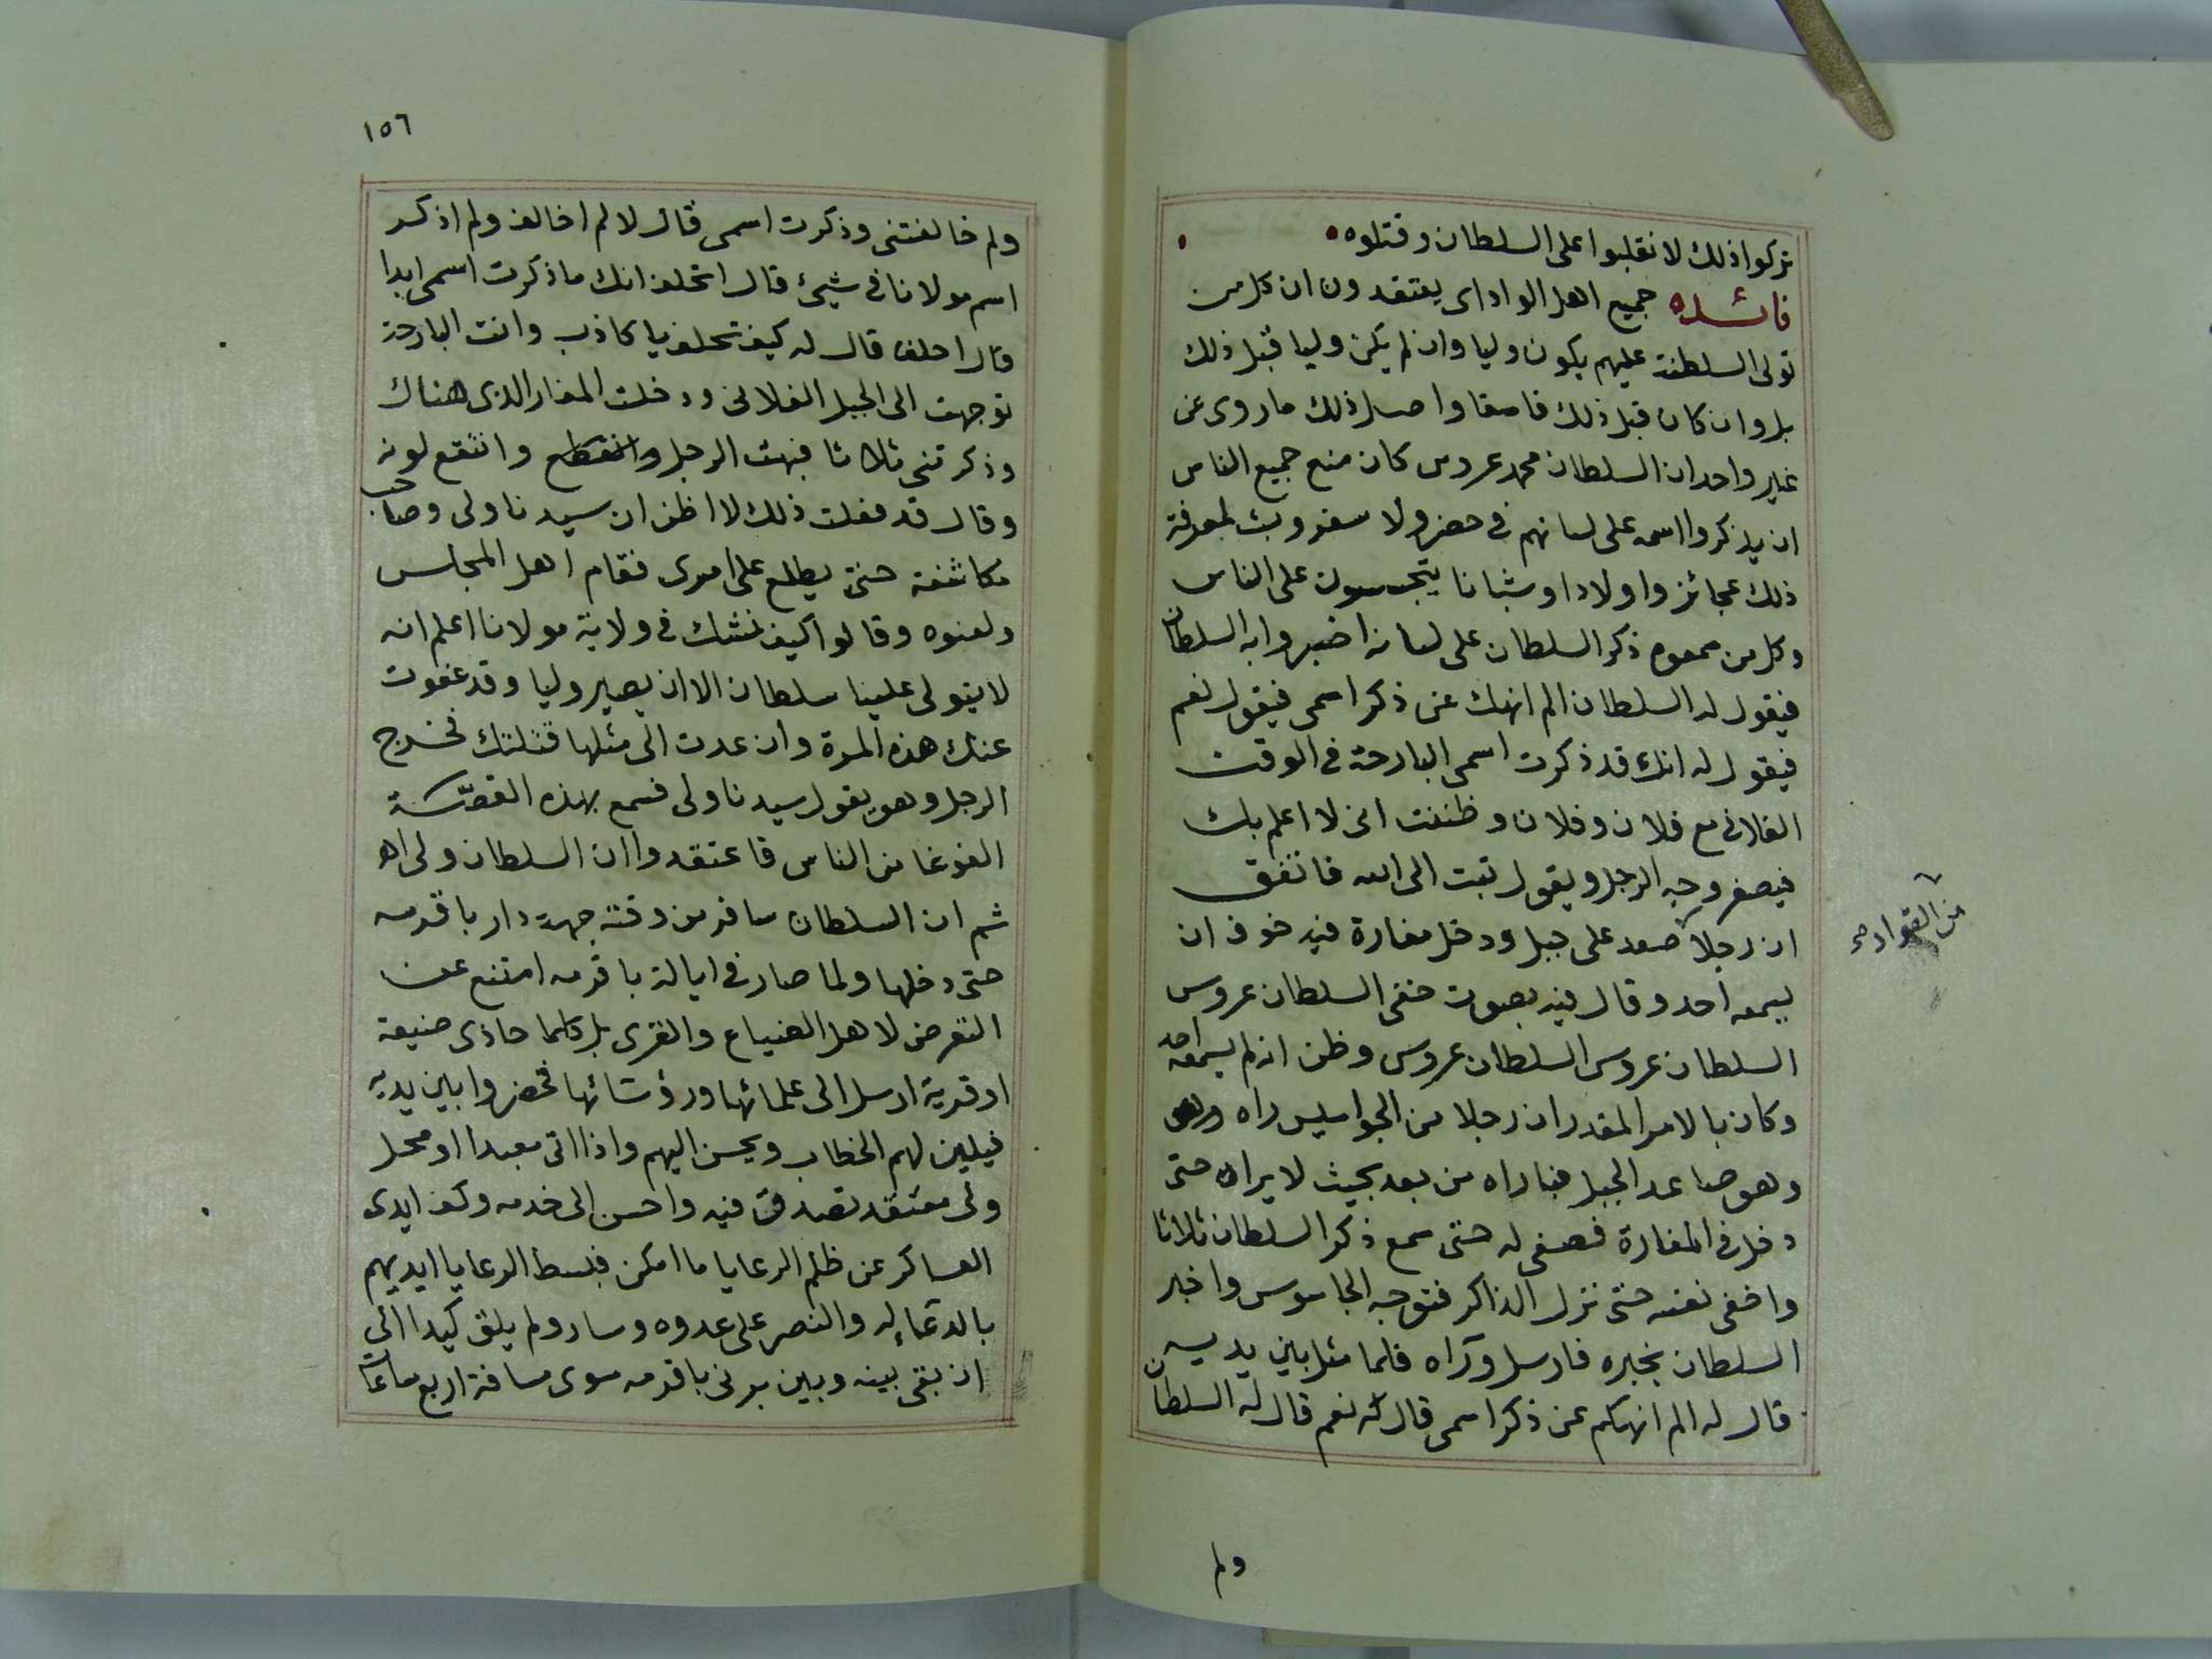 تركوا ذلك لانقلبوا على السلطان وقتلوه
فائده جميع اهل الواداى يعتقدون ان كل من
تولى السلطنة عليهم يكون وليا وان لم يكن وليا قبل ذلك
بل وان كان قبل ذلك فاسقا واصل ذلك ما روى عن
غير واحد ان السلطان محمد عروس كان منع جميع الناس
ان يذكروا اسمه على لسانهم فى حضر ولا سفر وبث لمعرفة
ذلك عجائز واولادا وشبانا يتجسسون على الناس
وكل من سمعوه ذكر السلطان على لسانه اخبروا به السلطان
فيقول له السلطان الم انهك عن ذكر اسمى فيقول نعم
فيقول له انك قد ذكرت اسمى البارحة فى الوقت
الفلانى مع فلان وفلان وظننت انى لا اعلم بك
فيصفر وجه الرجل ويقول تبت الى الله فاتفق
ان رجلا صعد على جبل ودخل مغارة فيه خوف ان
يسمعه احد وقال فيه بصوت خفى السلطان عروس
السلطان عروس السلطان عروس وظن انه لم يسمعه احد
وكان بالامر المقدر ان رجلا من الجواسيس راه
وهو صاعد الجبل فباراه من بعد بحيث لا يراه حتى
دخل فى المغارة فصغى له حتى سمع ذكر السلطان ثلاثا
واخفى نفسه حتى نزل الذاكر فتوجه الجاسوس واخبر
السلطان بخبره فارسل وراه فلما مثل بين يديه
قال له الم انهكم عن ذكر اسمى قال له نعم قال له السلطان
من القوادم
ولم
١٥٦
ولم خالفتنى وذكرت اسمى قال لا لم اخالف ولم اذكر
اسم مولانا فى شيئ قال اتحلف انك ما ذكرت اسمى ابدا
قال احلف قال له كيف تحلف يا كاذب وانت البارحة
توجهت الى الجبل الفلانى ودخلت المغار الذى هناك
وذكرتنى ثلاثا فبهت الرجل وانقطع وانتقع لونه
وقال قد فعلت ذلك لا اظن ان سيدنا ولى وصاحب
مكاشفة حتى يطلع على امرى فقام اهل المجلس
ولعنوه وقالوا كيف تشك فى ولاية مولانا اعلم انه
لا يتولى علينا سلطان الا ان يصير وليا وقد عفوت
عنك هذه المرة وان عدت الى مثلها قتلتك فخرج
الرجل وهو يقول سيدنا ولى فسمع بهذه القصة
الغوغا من الناس فاعتقدوا ان السلطان ولى اه
ثم ان السلطان سافر من وقته جهة دار باقرمه
حتى دخلها ولما صار فى ايالة باقرمه امتنع عن
التعرض لاهل الضياع والقرى بل كلما حاذى ضيعة
او قرية ارسل الى علمائها ورؤسائها فحضروا بين يديه
فيلين لهم الخطاب ويحسن اليهم واذا اتى معبدا او محل
ولى معتقد تصدق فيه واحسن الى خدمه وكف ايدى
العساكر عن ظلم الرعايا ما امكن فبسط الرعايا ايديهم
بالدعاء له والنصر على عدوه وسار ولم يلق كيدا الى
ان بقى بينه وبين برنى باقرمه سوى مسافة اربع ساعات